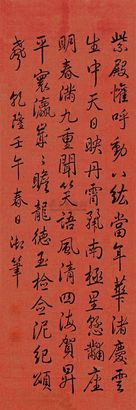 紫殿懽呼動八紘當年華渚慶雲
生中天日映丹霄南極星懸黼座
明春滿九重聞笑語風清四海賀昇
平寰瀛歲歲瞻龍德玉檢金泥紀頌
聲 乾隆壬午春日御筆